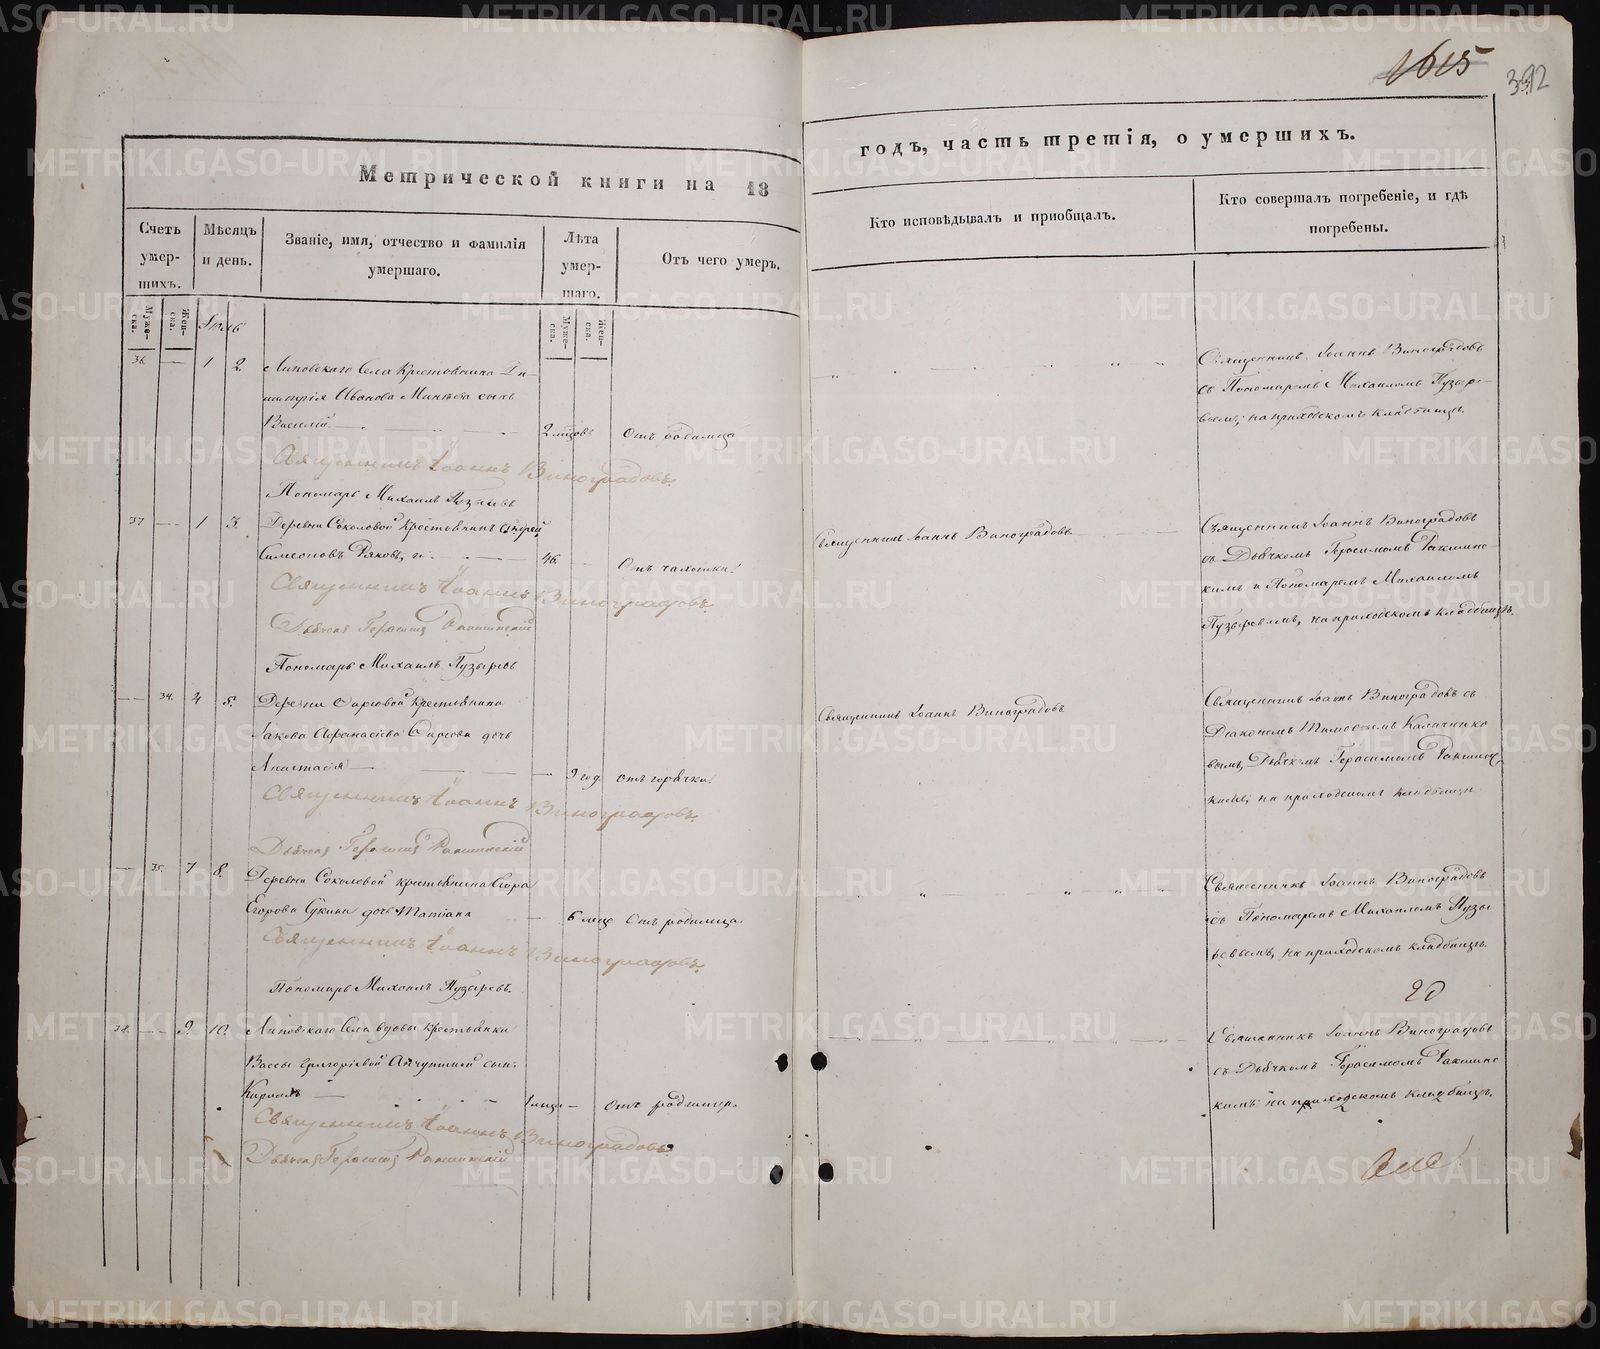 1615
392
Метрической книги на 18
годъ, часть третія, о умершихъ.
Счетъ умер-
шихъ.
Мѣсяцъ
и день.
Званіе, имя, отчество и фамилія
умершаго.
Лѣта
умер-
шаго.
Отъ чего умеръ.
Кто исповѣдывалъ и приобщалъ.
Кто совершалъ погребеніе, и гдѣ
погребены.
Муже-
ска.
Жен-
ска.
Муже-
ска.
Жен-
ска.
36. 1 2. Липовскаго Села Крестьянина Ди-
митрія Иванова сынъ
Василій 2 мѣцовъ Отъ родимца
Священникъ Іоаннъ Виноградовъ
съ Пономаремъ Михаиломъ Пузыре-
вымъ, на приходскомъ кладбищѣ.
Священникъ Іоаннъ Виноградовъ.
Пономарь Михаилъ Пузыревъ
37 1 3. Деревни Соколовой Крестьянинъ Андрей
Симеоновъ 46. Отъ чахотки.
Священникъ Іоаннъ Виноградовъ.
Священникъ Іоаннъ Виноградовъ
съ Дьячкомъ Герасимомъ Ракшинс-
кимъ и Пономаремъ Михаиломъ
Пузыревымъ, на приходскомъ кладбищѣ.
Священникъ Іоаннъ Виноградовъ.
Дьячекъ Герасимъ Ракшинскій
Пономарь Михаилъ Пузыревъ
34. 4 5. Деревни Крестьянина
Іакова Афанасіева дочь
Анастасія 9 год. отъ горячки.
Священникъ Іоаннъ Виноградовъ
Священникъ Іоаннъ Виноградовъ съ
Діакономъ Тимофеемъ Калачнико-
вымъ, Дьячкомъ Герасимомъ Ракшинс-
кимъ, на приходскомъ кладбищѣ
Священникъ Іоаннъ Виноградовъ.
Дьячекъ Герасимъ Ракшинскій
35. 7 8. Деревни Соколовой крестьянина Егора
Егорова Сукина дочь Татіана 6 мѣце Отъ родимца.
Священникъ Іоаннъ Виноградовъ
съ Пономаремъ Михаиломъ Пузы-
ревымъ, на приходскомъ кладбищѣ.
Священникъ Іоаннъ Виноградовъ.
Пономарь Михаилъ Пузыревъ.
38. 9. 10. Липовскаго Села вдовы крестьянки
Вассы Григоріевой сынъ
Кириллъ 1 мѣце Отъ родимца.
Священникъ Іоаннъ Виноградовъ
съ Дьячкомъ Герасимомъ Ракшинс-
кимъ на приходскомъ кладбищѣ.
Священникъ Іоаннъ Виноградовъ.
Дьячекъ Герасимъ Ракшинскій
METRIKI.GASO-URAL.RU